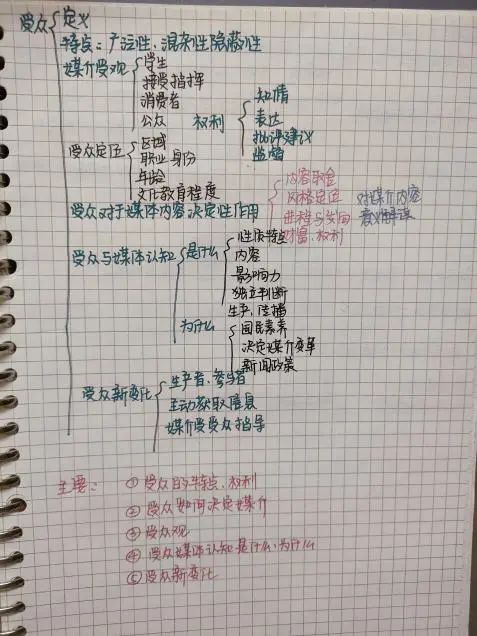 受众 定义
特点：广泛性、混杂性隐蔽性
媒介受众观 学生
接受指挥
消费者
公众
权利 知情
表达
批评建议
监督
受众定位 区域
职业 身份
年龄
文化教育程度
受众对于媒体内容决定性作用
内容取舍
风格定位
进程与方向
财富、权利
对媒介内容
意义解读
受众与媒体认知 是什么 性质特点
内容
影响力
独立判断
生产、传播
为什么 国民素养
决定媒介变革
新闻政策
受众新变化 生产者、参与者
主动获取信息
媒介受受众指导
主要：①受众的特点、权利
②受众如何决定媒介
③受众观
④受众媒体认知是什么、为什么
⑤受众新变化